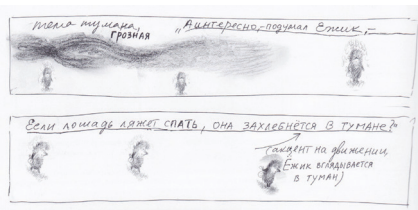 тема тумана, "А интересно,-подумал Ёжик,-
ГРОЗНАЯ
Если лошадь ляжет СПАТЬ, ОНА ЗАХЛЕБНЁТСЯ В ТУМАНЕ?"
(акцент на движении
Ёжик вглядывается
в туман)